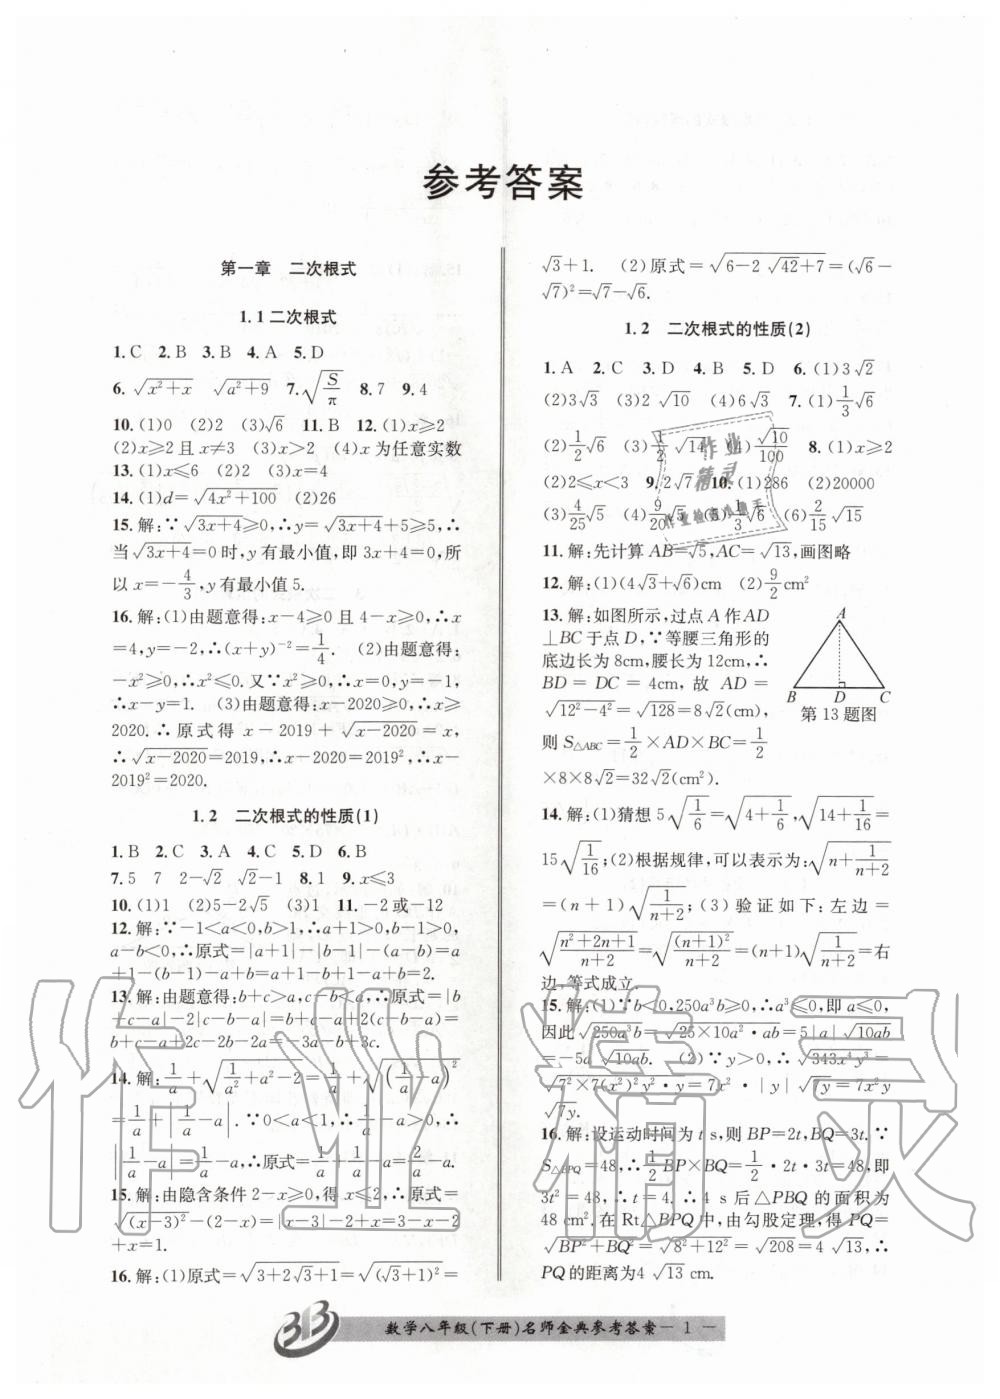 参考答案
第一章 二次根式
1.1 二次根式
1. C 2. B 3. B 4. A 5. D
6. √(x²+x) √(a²+9) 7. √(S/π) 8. 7 9. 4
10. (1)0 (2)2 (3)√6 11. B 12. (1)x≥2
(2)x≥2且x≠3 (3)x>2 (4)x为任意实数
13. (1)x≤6 (2)x=2 (3)x=4
14. (1)d=√(4x²+100) (2)26
15. 解:∵√(3x+4)≥0,∴y=√(3x+4)+5≥5,∴
当√(3x+4)=0时,y有最小值,即3x+4=0,所
以x=-4/3,y有最小值5.
16. 解:(1)由题意得:x-4≥0且4-x≥0,∴x
=4,y=-2,∴(x+y)⁻²=1/4. (2)由题意得:
-x²≥0,∴x²≤0.又∵x²≥0,∴x=0,y=-1,
∴x-y=1. (3)由题意得:x-2020≥0,∴x≥
2020.∴原式得x-2019+√(x-2020)=x,
∴√(x-2020)=2019,∴x-2020=2019²,∴x-
2019²=2020.
1.2 二次根式的性质(1)
1. B 2. C 3. A 4. C 5. D 6. B
7. 5 7 2-√2 √2-1 8. 1 9. x≤3
10. (1)1 (2)5-2√5 (3)1 11. -2或-12
12. 解:∵-1<a<0,b>1,∴a+1>0,b-1>0,
a-b<0,∴原式=|a+1|-|b-1|-(a-b)=a
+1-(b-1)-a+b=a+1-b+1-a+b=2.
13. 解:由题意得:b+c>a,c-b<a,∴原式=|b
+c-a|-2|c-b-a|=b+c-a+2(c-b-a)=
b+c-a+2c-2b-2a=-3a-b+3c.
14. 解:1/a+√(1/a²+a²-2)=1/a+√((1/a-a)²)
=1/a+|1/a-a|.∵0<a<1,∴1/a>a,∴
|1/a-a|=1/a-a,∴原式=1/a+1/a-a=2/a-a.
15. 解:由隐含条件2-x≥0,得x≤2,∴原式=
√((x-3)²)-(2-x)=|x-3|-2+x=3-x-2
+x=1.
16. 解:(1)原式=√(3+2√3+1)=√((√3+1)²)=
√3+1. (2)原式=√(6-2√42+7)=(√6-
√7)²=√7-√6.
1.2 二次根式的性质(2)
1. A 2. C 3. D 4. B 5. D 6. (1)3√2
(2)3√3 (3)2√10 (4)6√3 7. (1)1/3√6
(2)1/2√6 (3)1/2√14 (4)√10/100 8. (1)x≥2
(2)2≤x<3 9. 2√7 10. (1)286 (2)20000
(3)4/25√5 (4)9/20√5 (5)1/3√6 (6)2/15√15
11. 解:先计算AB=√5,AC=√13,画图略
12. 解:(1)(4√3+√6)cm (2)9/2cm²
13. 解:如图所示,过点A作AD
⊥BC于点D,∵等腰三角形的
底边长为8cm,腰长为12cm,∴
BD=DC=4cm,故AD=
√(12²-4²)=√128=8√2(cm),
则S△ABC=1/2×AD×BC=1/2
×8×8√2=32√2(cm²).
A
B D C
第13题图
14. 解:(1)猜想5√(1/6)=√(4+1/6),√(14+1/16)=
15√(1/16);(2)根据规律,可以表示为:√(n+1/(n+2))
=(n+1)√(1/(n+2));(3)验证如下:左边=
√((n²+2n+1)/(n+2))=√((n+1)²/(n+2))=(n+1)√(1/(n+2))=右
边,等式成立.
15. 解:(1)∵b<0,250a³b≥0,∴a³≤0,即a≤0,
因此√(250a³b)=√(25×10a²·ab)=5|a|√(10ab)
=-5a√(10ab). (2)∵y>0,∴√(343x⁴y³)=
√(7²×7(x²)²y²·y)=7x²·|y|√(7y)=7x²y
√(7y).
16. 解:设运动时间为t s,则BP=2t,BQ=3t.∵
S△BPQ=48,∴1/2BP×BQ=1/2·2t·3t=48,即
3t²=48,∴t=4.∴4 s后△PBQ的面积为
48 cm².在Rt△BPQ中,由勾股定理,得PQ=
√(BP²+BQ²)=√(8²+12²)=√208=4√13,∴
PQ的距离为4√13 cm.
数学八年级(下册)名师金典参考答案—1—
作业精灵
作业
精灵